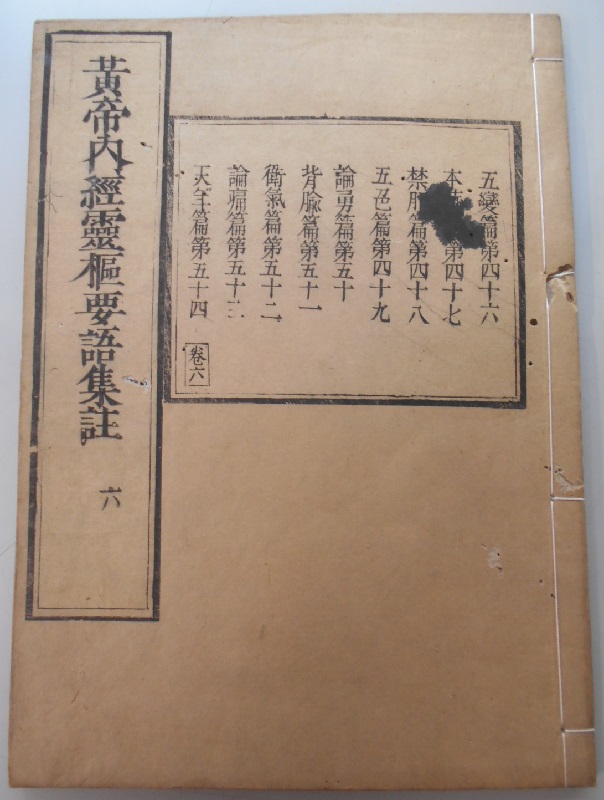 黃帝內經靈樞要語集註
六
五變篇第四十六
本第四十七
禁服篇第四十八
五色篇第四十九
論勇篇第五十
背腧篇第五十一
衛氣篇第五十二
論痛篇第五十三
天年篇第五十四
卷六